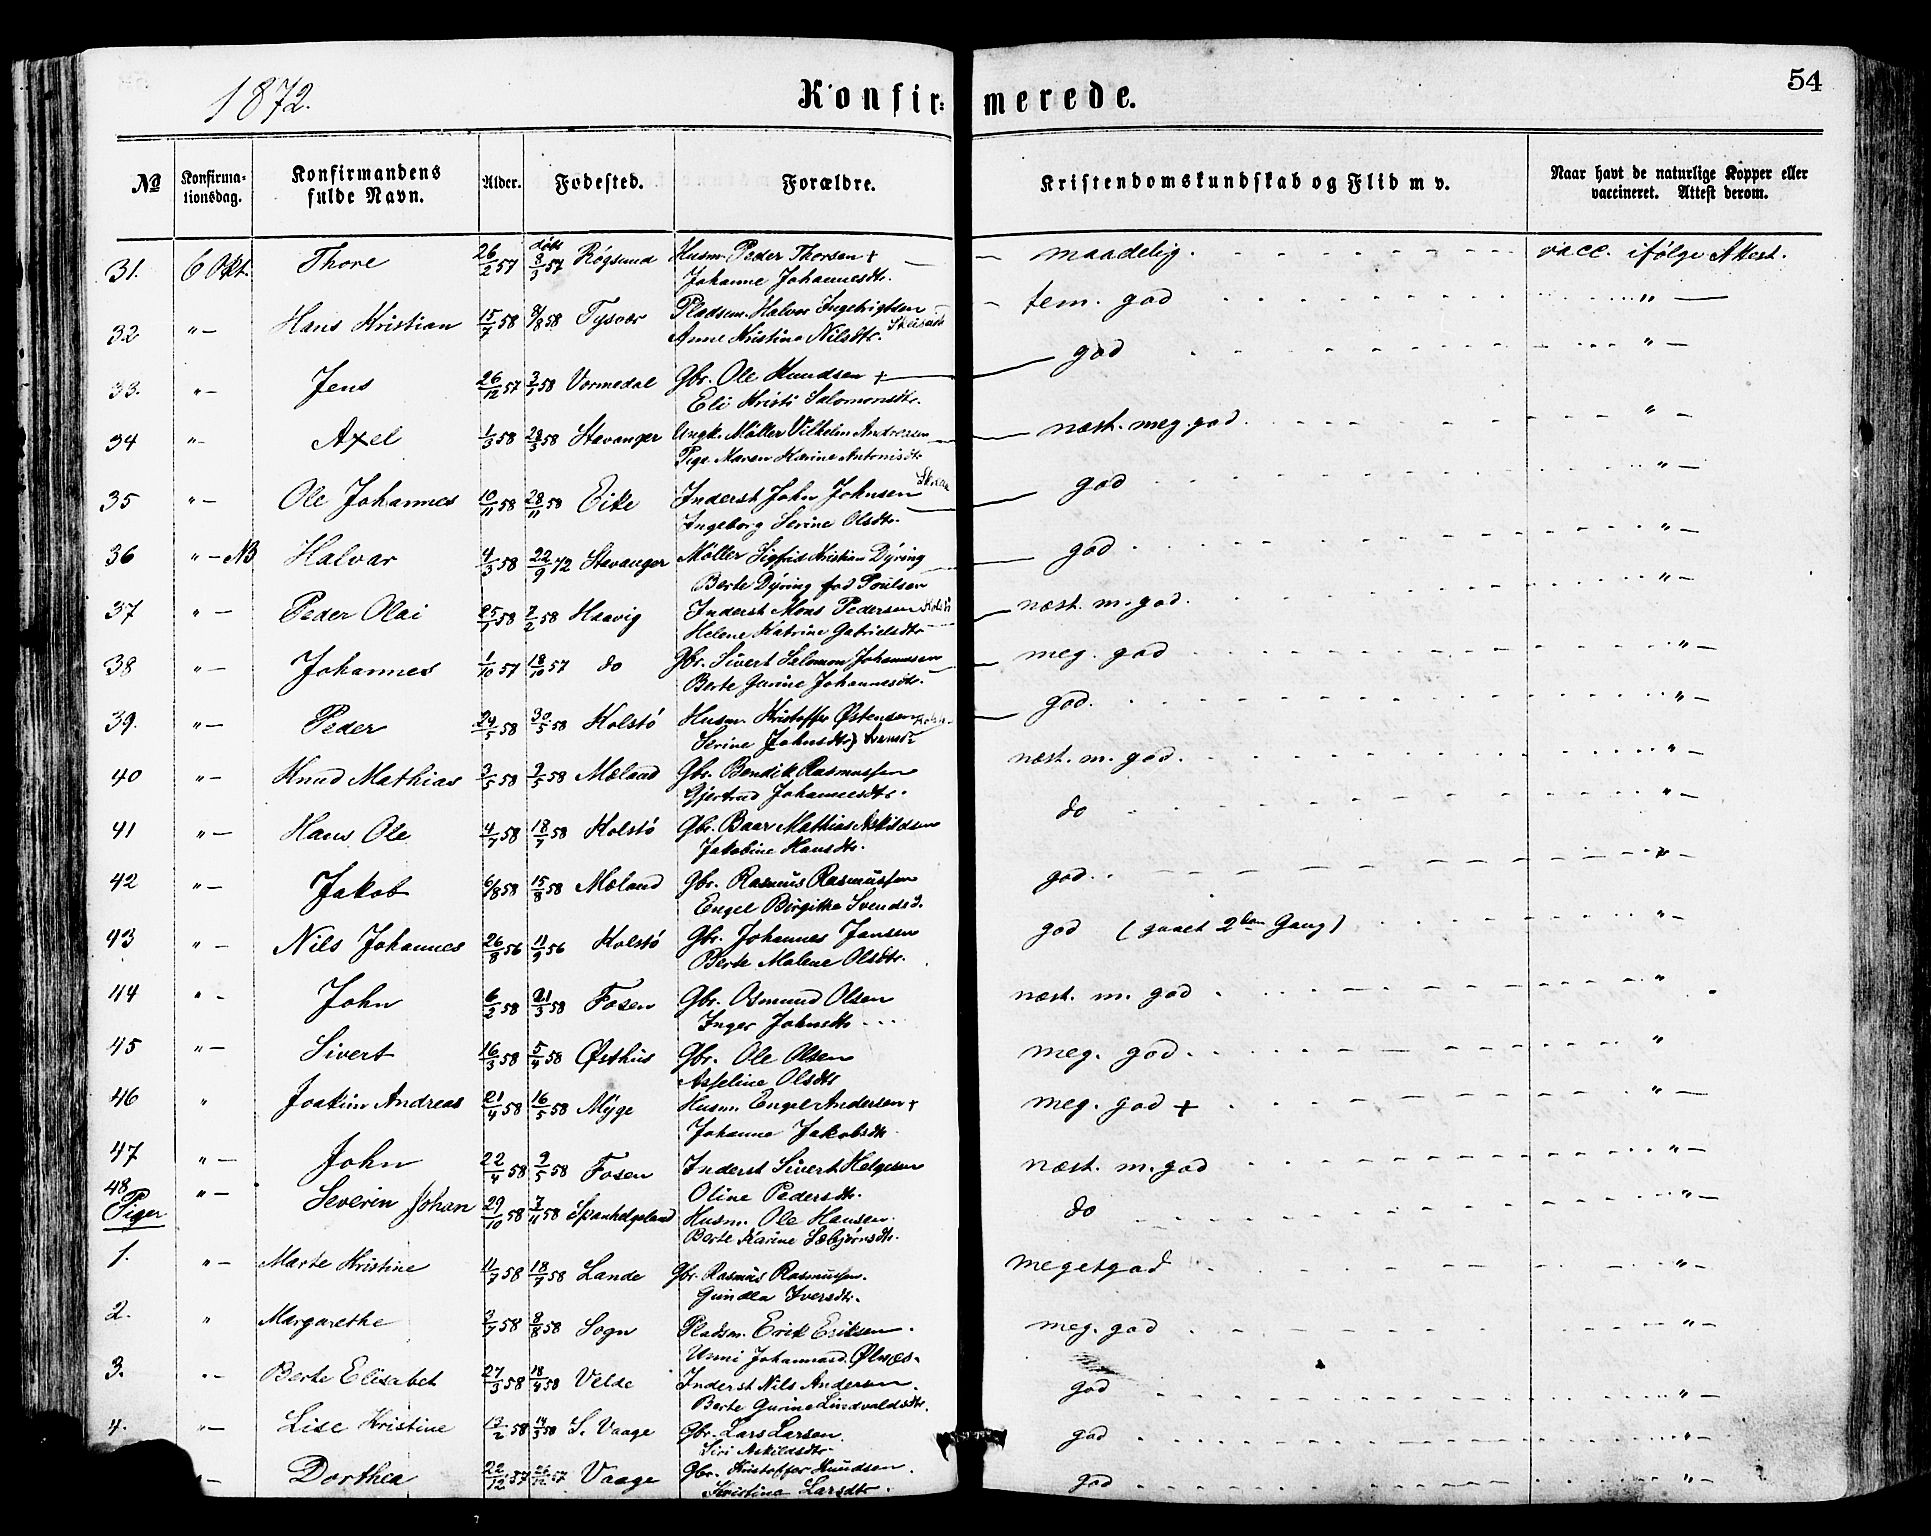 1872.
Konfir= merede.
54
No
Konfirma=
tionsdag.
Konfirmandens
fulde Navn.
Alder.
Fødested.
Forældre.
Kristendomskundskab og Flid m v.
Naar havt de naturlige Kopper eller
vaccineret. Attest derom.
31. 6 Okt. Thore 26/2 57 døbt 8/3 57 Røgsund Husm. Peder Thorsen + – maadelig. vacc. ifölge Attest.
Johanne Johannesdtr.
32 " – Hans Kristian 15/7 58 8/8 58 Tysvær Pladsm. Halvor Ingebrigtsen – tem. god " –
Anne Kristine Nilsdtr.
33. " – Jens 26/12 57 3/1 58 Vormedal Gbr. Ole Knudsen + god " –
Eli Kristi Salomonsdtr.
34 " – Axel 1/3 58 28/3 58 Stavanger Ungk. Møller Vilhelm Andreasen næst. meg. god. " –
Pige Maren Karine Antonisdtr
35 " – Ole Johannes 10/11 58 28/11 58 Eike Inderst John Johnsen god " –
Ingeborg Serine Olsdtr.
36 " – NB Halvar 4/3 58 22/9 72 Stavanger Møller Sigfrid Kristian Dyring god " –
Berte Dyring fød Poulsen
37 " – Peder Olai 25/1 58 7/2 58 Haavig Inderst Mons Pedersen Kolstö næst. m. god. " –
Helene Katrine Gabrielsdtr
38 " – Johannes 1/10 57 18/10 57 do Gbr. Sivert Salomon Johannesen – meg. god " –
Berte Gurine Johannesdtr.
39. " – Peder 24/5 58 30/5 58 Kolstö Husm. Kristoffer Østensen god. " –
Serine (Johnsdtr)
40 " – Knud Mathias 3/5 58 9/5 58 Mæland Gbr. Bendik Rasmussen næst. m. god. " –
Gjertrud Johannesdtr.
41 " – Hans Ole 4/7 58 18/7 58 Kolstö Gbr. Baar Mathias Askildsen do " –
Jakobine Hansdtr.
42 " – Jakob 6/8 58 15/8 58 Mæland Gbr. Rasmus Rasmussen god. " –
Engel Birgitha Svendsd.
43 " – Nils Johannes 26/8 56 11/9 56 Kolstö Gbr. Johannes Jansen god (gaaet 2den Gang) " –
Berte Malene Olsdtr.
44 " – John 6/2 58 21/3 58 Fosen Gbr. Osmund Olsen næst. m. god "
Inger Johnsdtr
45 " – Sivert 16/3 58 5/4 58 Østhus Gbr. Ole Olsen meg. god. "
Asseline Olsdtr
46 " Joakim Andreas 21/4 58 16/5 58 Myge Husm. Engel Andersen + meg. god + " –
Johanne Jakobsdtr.
47 " – John 22/4 58 9/5 58 Fosen Inderst Sivert Helgesen næst. m. god " –
Oline Pedersdtr.
48 " – Severin Johan 29/10 58 7/11 58 Spanhelgeland Husm. Ole Hansen do " –
Berte Karine Sæbjørnsdtr.
Piger
1. " – Marte Kristine 11/7 58 18/7 58 Lande Gbr. Rasmus Rasmussen. megetgod " –
Gundla Iversdtr.
2. " Margarethe 3/7 58 8/8 58 Sogn Pladsm. Erik Eriksen. meg. god " –
Unni Johannesd. Ølnæs.
3. " – Berte Elisabet 27/3 58 18/4 58 Velde Inderst Nils Andersen. god " –
Berte Gurine Lindvaldsdtr.
4. " – Lise Kristine 13/2 58 14/3 58 S. Vaage Gbr. Lars Larsen. god " –
Siri Askildsdtr.
" – Dorthea 22/12 57 26/12 57 Vaage Gbr. Kristoffer Knudsen. god " –
Kristine Larsdtr.